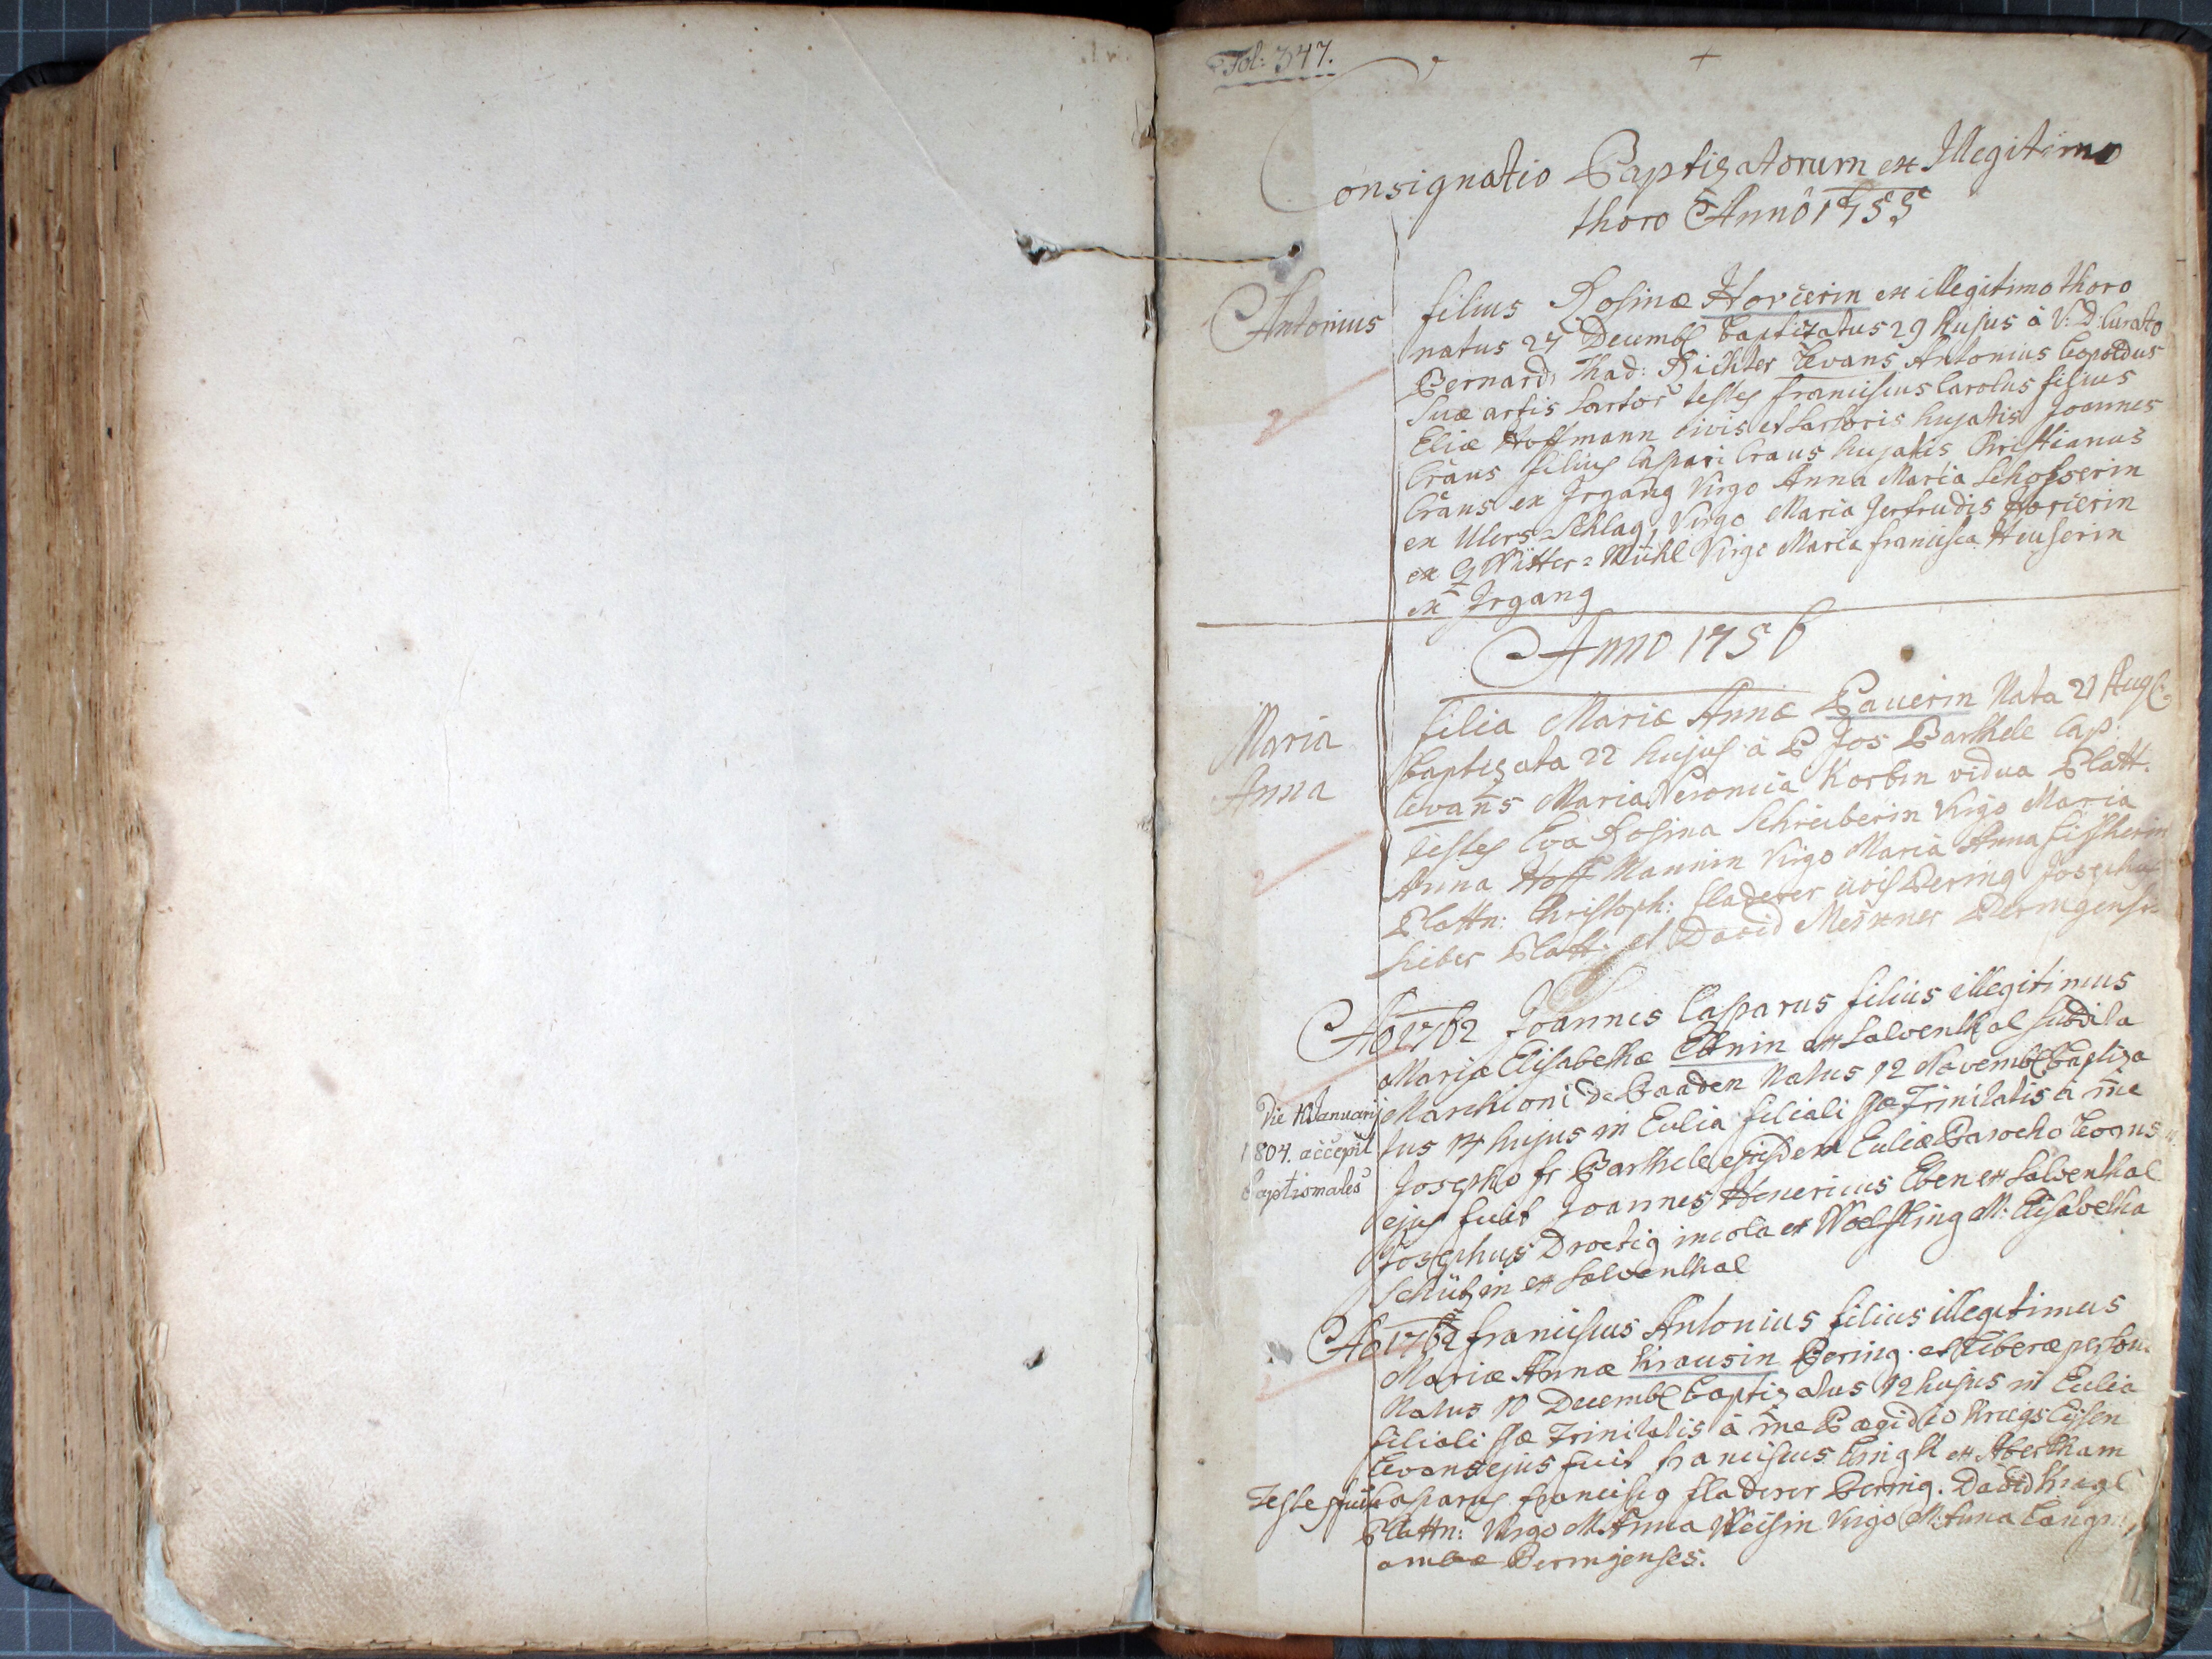 Fol: 347.
Consignatio Baptizatorum ex Illegitimo
thoro Anno 1755
Antonius
filius Rosinæ Horcerin ex illegitimo thoro
natus 27 Decemb baptizatus 29 hujus à V: D: Curato
Bernard Thad: Richter Levans Antonius Leopoldus
suæ artis Sartor testes Franciscus Carolus filius
Eliæ Hoffmann civis et Sartoris hujatis Joannes
Craus filius Caspari Craus hujatis Christianus
Craus ex Irgang Virgo Anna Maria Schosserin
ex Ulers=Schlag, Virgo Maria Gertrudis Horcerin
ex Mühl Virgo Maria Francisca Heuserin
ex Irgang
Anno 1756
Maria
Anna
filia Mariæ Annæ Bauerin Nata 21 Aug
baptizata 22 hujus à P Jos Barthele Cap:
levans Maria Veronica Korbin vidua Platt.
testes Eva Rosina Schreiberin Virgo Maria
Anna Hoff Mannin Virgo Maria Anna Fischerin
Plattn: Christoph: Fladerer civis Bering Josephus
Sieber Platt: et David Meixner Beringensis
Ao 1762 Joannes Casparus filius illegitimus
Mariæ Elisabethæ Ebnin ex Salventhal subdita
Marchioni de Baaden Natus 12 Novemb Baptiza
tus 14 hujus in Eulia filiali SSæ Trinitatis à me
Josepho fr Barthele ejusdem Euliæ Parocho Levans
ejus fuit Joannes Henericus Eben ex Salventhal
Josephus Droetig incola ex Woelfling M: Elisabetha
Schützin ex Salventhal
Die Januarij
1804. accepit
Baptismales
Ao 1762 Franciscus Antonius filius illegitimus
Mariæ Annæ Krausin Bering. et liberæ person.
Natus 10 Decemb Baptizatus 12 hujus in Eulia
filiali SSæ Trinitatis à me P Ægidio KriegsEisen
Levans ejus fuit Franciscus Ringl ex Abertham
Testes fuere Casparus Francisc Fladerer Bering. David Kregl
Plattn: Virgo M: Anna Weisin Virgo M: Anna Langn
ambæ Beringenses.